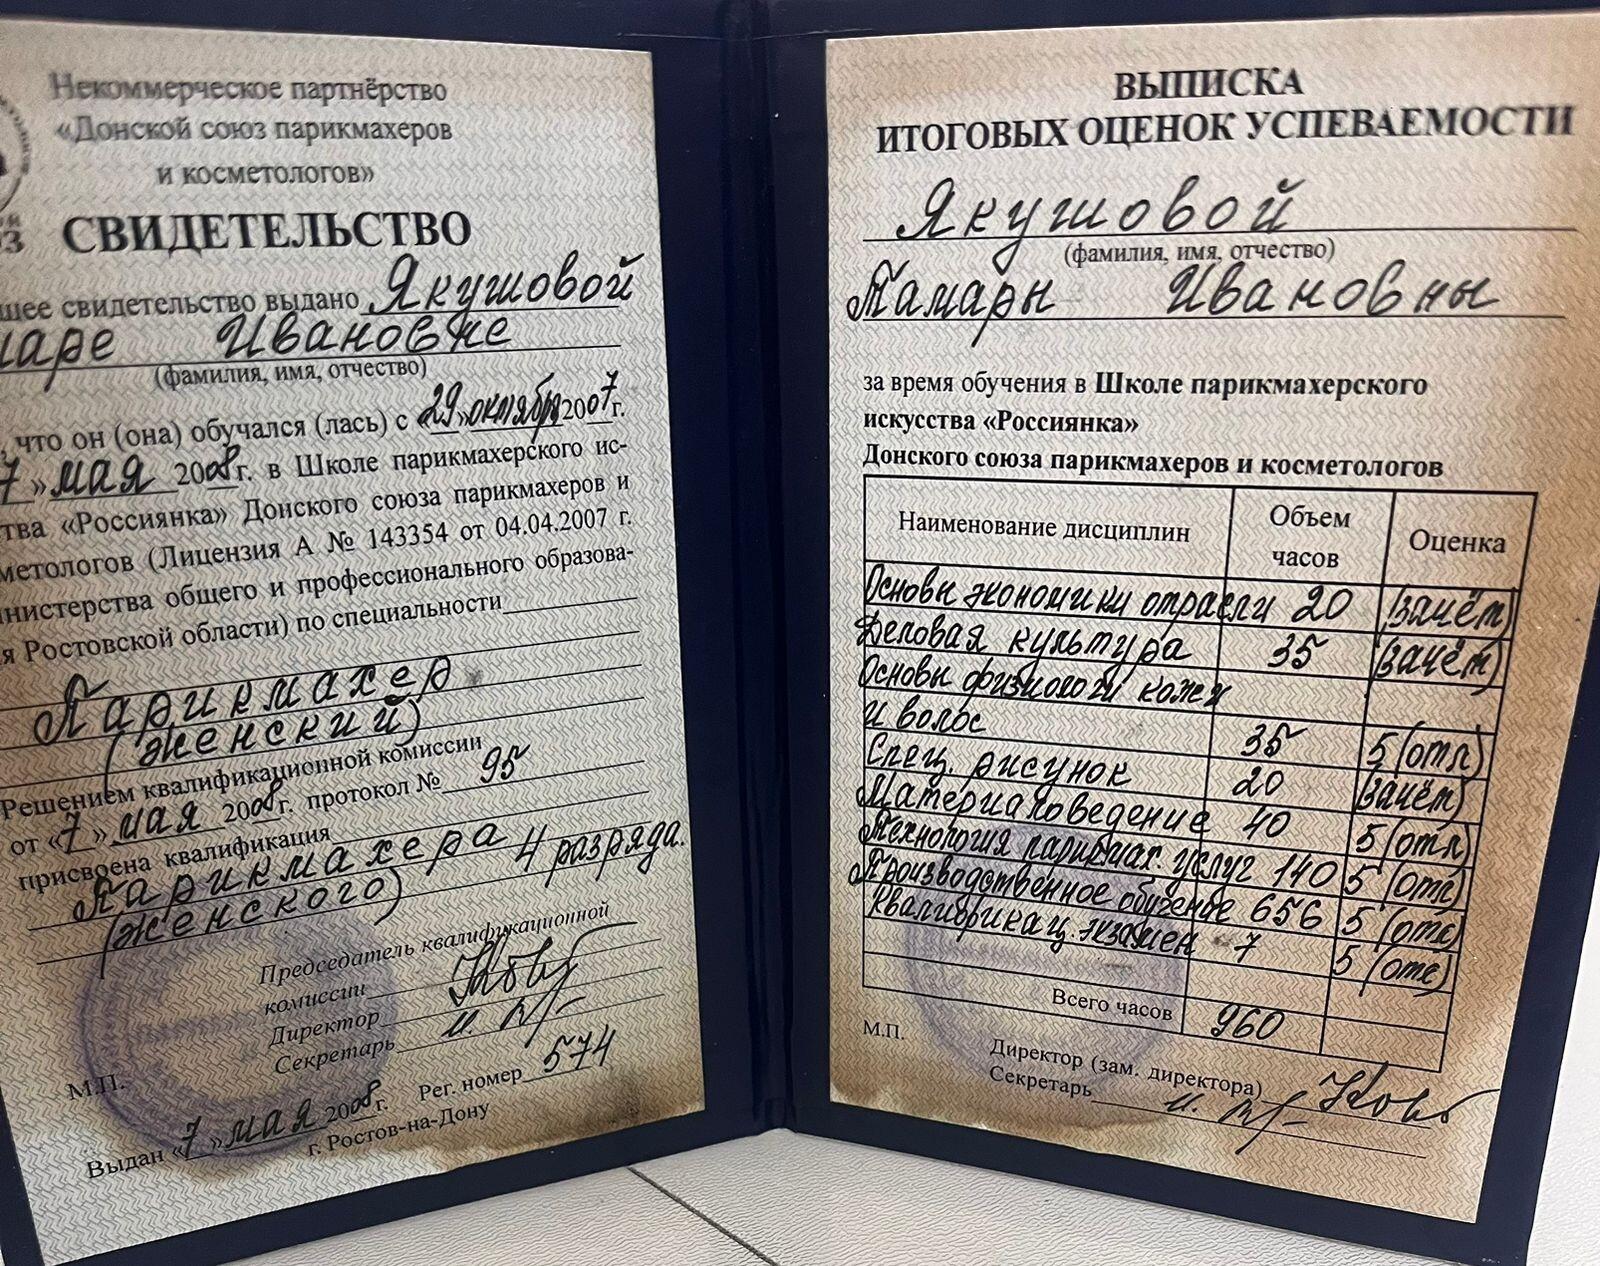 Некоммерческое партнёрство
«Донской союз парикмахеров
и косметологов»
СВИДЕТЕЛЬСТВО
шее свидетельство выдано Якушовой
аре Ивановне
(фамилия, имя, отчество)
, что он (она) обучался (лась) с «29» октября 2007 г.
7» мая 2008 г. в Школе парикмахерского ис-
тва «Россиянка» Донского союза парикмахеров и
метологов (Лицензия А № 143354 от 04.04.2007 г.
нистерства общего и профессионального образова-
я Ростовской области) по специальности
Парикмахер
(женский)
Решением квалификационной комиссии
от «7» мая 2008 г. протокол № 95
присвоена квалификация
Парикмахера 4 разряда.
(женского)
Председатель квалификационной
комиссии
Директор
Секретарь
М.П.
Выдан «7» мая 2008 г. Рег. номер 574
г. Ростов-на-Дону
ВЫПИСКА
ИТОГОВЫХ ОЦЕНОК УСПЕВАЕМОСТИ
Якушовой
(фамилия, имя, отчество)
Тамары Ивановны
за время обучения в Школе парикмахерского
искусства «Россиянка»
Донского союза парикмахеров и косметологов
Наименование дисциплин Объем часов Оценка
Основы экономики отрасли 20 (зачёт)
Деловая культура 35 (зачёт)
Основы физиологи кожи
и волос 35 5 (отл)
Спец. рисунок 20 (зачёт)
Материаловедение 40 5 (отл)
Технология парикмах. услуг 140 5 (отл)
Производственное обучение 656 5 (отл)
Квалификац. экзамен 7 5 (отл)
Всего часов 960
М.П.
Директор (зам. директора)
Секретарь